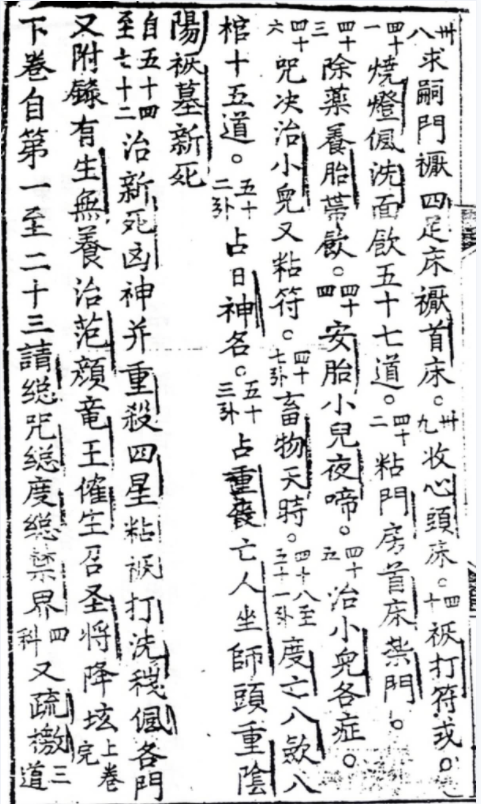 卅八求嗣門禳四足床禳首床。卅九收心頭床。四十袄打符或。
四十一燒燈偘洗面飲五十七道。四十二粘門房首床禁門。
四十三除藥養胎帶飲。四十四安胎小兒夜啼。四十五治小兒各症。
四十六咒决治小兒又粘符。四十七卦畜物天時。四十八至五十一卦度亡八歛八
棺十五道。五十二卦占日神名。五十三卦占重喪亡人坐師頭重陰
陽袄墓新死
自五十四至七十二治新死凶神并重殺四星粘袄打洗穢偘各門
又附錄有生無養治范顏竜王催生召圣将降垓上卷完
下卷自第一至二十三請緫咒緫度緫禁界四科又疏檄三道